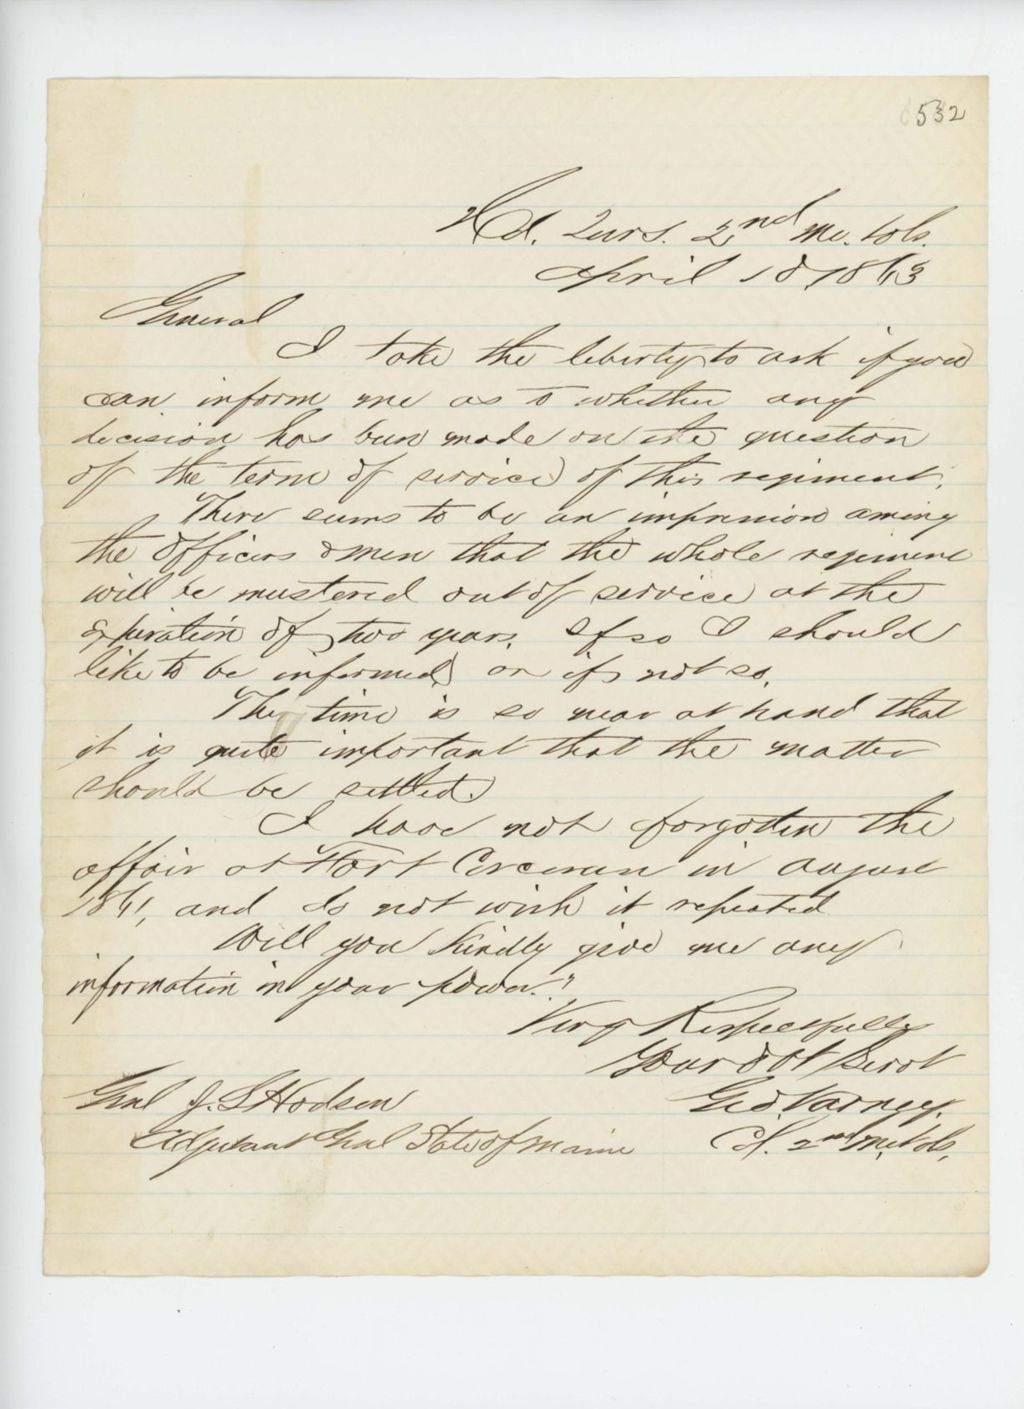 532
Hd. Qurs. 2nd Me. Vols.
April 10, 1863
General
I take the liberty to ask if you
can inform me as to whether any
decision has been made on the question
of the term of service of this regiment.
There seems to be an impression among
the officers & men that the whole regiment
will be mustered out of service at the
expiration of two years. If so I should
like to be informed, or if not so.
The time is so near at hand that
it is quite important that the matter
should be settled.
I have not forgotten the
affair at Fort Corcoran in August
1861, and do not wish it repeated
Will you kindly give me any
information in your power?
Very Respectfully
Your Obt Servt
Geo. Varney.
Col. 2nd Me. Vols.
Genl J. L Hodsdon
Adjutant Genl State of Maine